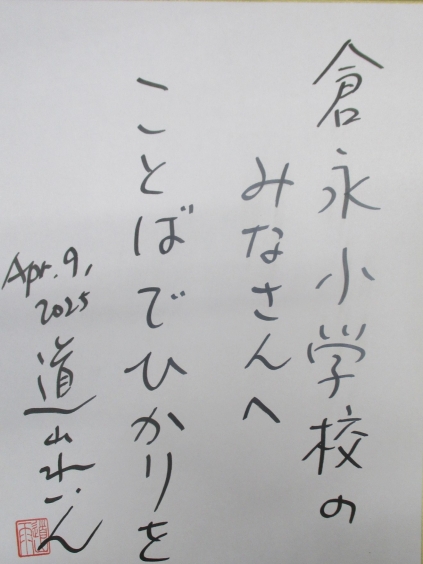 倉永小学校の
みなさんへ
ことばでひかりを
Apr. 9,
2025
道山れいん